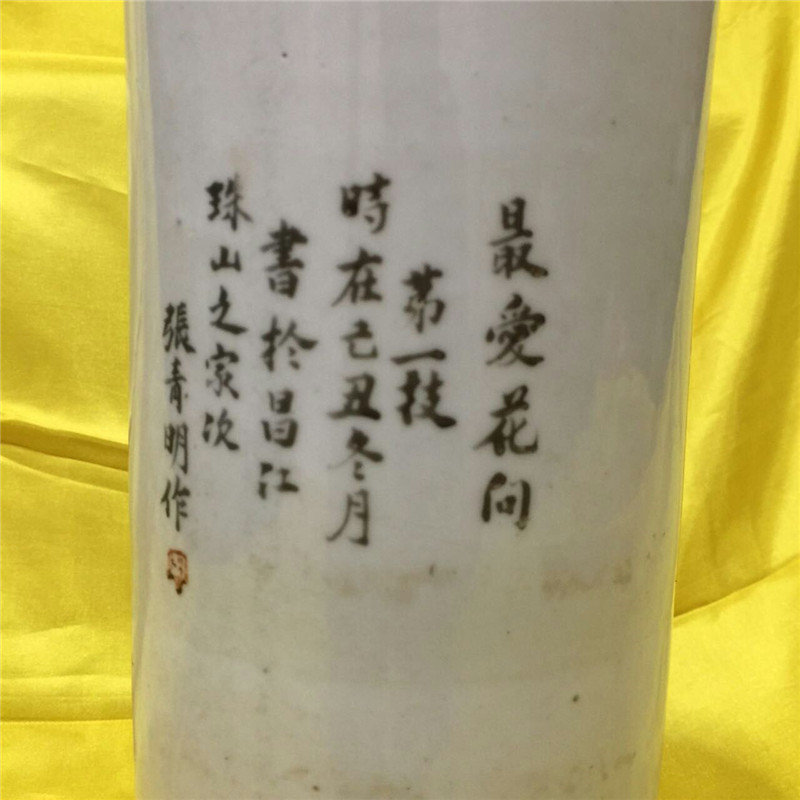 最愛花间
苐一技
時在己丑冬月
書於昌江
珠山之家次
張青明作